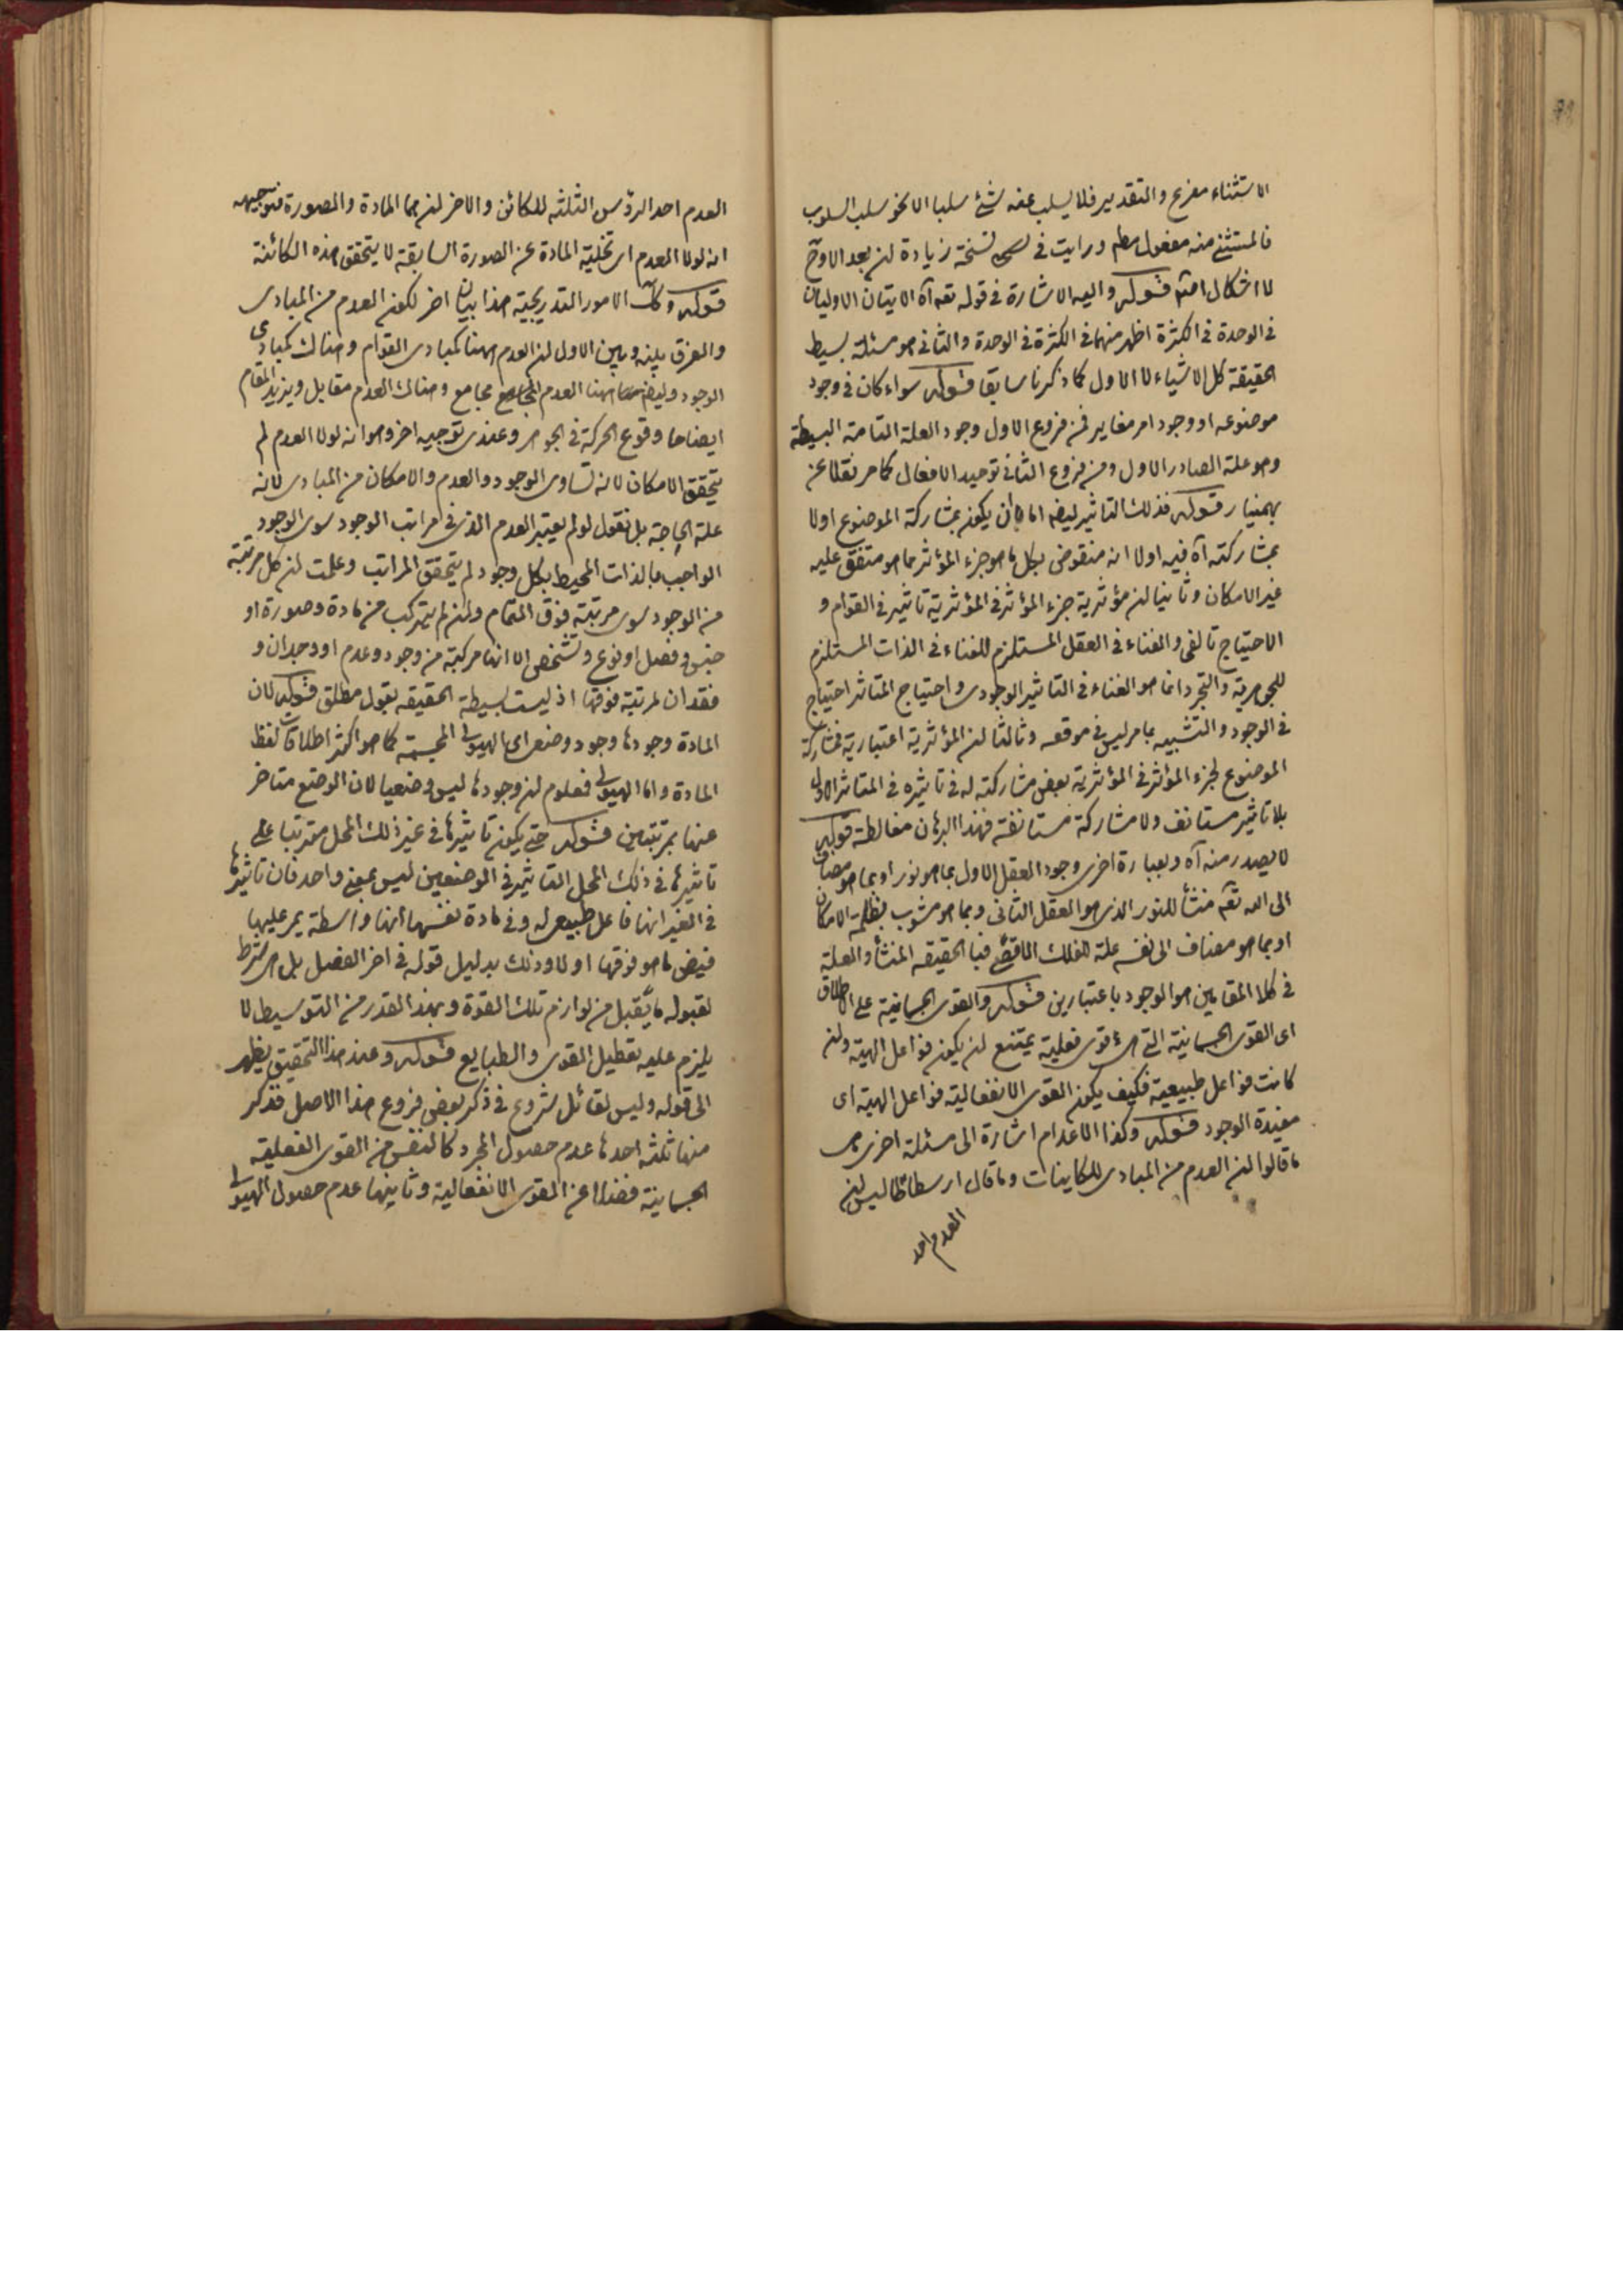 الاستثناء مفرغ والتقدير فلا يسلب عنه شئ سلبا الا نحو سلب السلوب
فالمستثنى منه مفعول مطلم ورايت فى نسخة زيادة لن بعد الا وح
لا اشكال امته قوله واليه الاشارة فى قوله تعه آه الايتان الاوليان
فى الوحدة فى الكثرة اظهر منهما فى الكثرة فى الوحدة والثانى هو مسئلة بسيط
الحقيقة كل الاشياء لا الاول كما ذكرنا سابقا قوله سواء كان فى وجود
موضوعه او وجود امر مغاير فمن فروع الاول وجود العلة التامة البسيطة
وهو علة الصادر الاول ومن فروع الثانى توحيد الافعال كما مر نقلا عن
بهمنيار قوله فذلك التاثير ليضه اما بان يكون بمشاركة الموضوع اولا
بمشاركته آه فيه اولا انه منقوض بكل ما هو جزء المؤثر مما هو متفق عليه
غير الامكان وثانيا لن مؤثرية جزء المؤثر فى المؤثرية تاثير فى القوام و
الاحتياج تالفى والغناء فى العقل المستلزم للغناء فى الذات المستلزم
للجوهرية والتجرد انما هو الغناء فى التاثير الوجودى واحتياج المتاثر احتياج
فى الوجود والتشبيه بما مر ليس فى موقعه وثالثا لن المؤثرية اعتبارية فمشاركة
الموضوع لجزء المؤثر فى المؤثرية بعض مشاركته له فى تاثيره فى المتاثر الاولى
بلا تاثير مستانف ولا مشاركة مستانفة فهذا البرهان مغالطة قوله
لا يصدر منه آه وبعبارة اخرى وجود العقل الاول بما هو نور او بما هو مضاف
الى الله تعه منشأ للنور الذى هو العقل الثانى وبما هو مشوب بظلمة الامكان
او بما هو مضاف الى نفسه علة للفلك الاقصى فبالحقيقه المنشأ والعلة
فى كلا المقامين هو الوجود باعتبارين قوله والقوى الجسمانية على الاطلاق
اى القوى الجسمانية التى هى قوى فعلية يمتنع لن يكون فواعل الهية ولن
كانت فواعل طبيعية فكيف يكون القوى الانفعالية فواعل الهية اى
مفيدة الوجود قوله وكذا الاعدام اشارة الى مسئلة اخرى هى
ما قالوا لن العدم من المبادى للكاينات وما قال ارسطاطاليس لن
العدم احد
العدم احد الرؤس الثلثة للكائن والاخر لن هما المادة والصورة فتوجيهه
انه لولا العدم اى تخلية المادة عن الصورة السابقة لا يتحقق هذه الكائنة
قوله وكك الامور التدريجية هذا بيان اخر لكون العدم من المبادى
والفرق بينه وبين الاول لن العدم ههنا كمبادى القوام وهناك كمبادى
الوجود وليضه ههنا العدم مجامع وهناك العدم مقابل ويزيد المقام
ايضاحا وقوع الحركة فى الجوهر وعندى توجيه اخر وهو انه لولا العدم لم
يتحقق الامكان لانه تساوى الوجود والعدم والامكان من المبادى لانه
علة الحاجة بل نقول لو لم يعتبر العدم الذى فى مراتب الوجود سوى الوجود
الواجب بالذات المحيط بكل وجود لم يتحقق المراتب وعلمت لن كل مرتبة
من الوجود سوى مرتبة فوق التمام ولن لم يتركب من مادة وصورة او
جنس وفصل او نوع وتشخص الا انها مركبة من وجود وعدم او وجدان و
فقدان لمرتبة فوقها اذ ليست بسيطة الحقيقه بقول مطلق قوله لان
المادة وجودها وجود وضعى اى الهيولى المجسمة كما هو اكثر اطلاقات لفظ
المادة واما الهيولى فمعلوم لن وجودها ليس وضعيا لان الوضع متاخر
عنها بمرتبتين قوله حتى يكون تاثيرها فى غير ذلك المحل مترتبا على
تاثيرها فى ذلك المحل التاثير فى الموضعين ليس بمعنى واحد فان تاثيرها
فى الغير انها فاعل طبيعى له وفى مادة نفسها انها واسطة يمر عليها
فيض ما هو فوقها اولا وذلك بدليل قوله فى اخر الفصل بل هى شرط
لقبوله ما يقبل من لوازم تلك القوة وبهذا القدر من التوسيط لا
يلزم عليه تعطيل القوى والطبايع قوله وعند هذا التحقيق يظهر
الى قوله وليس لقائل شروع فى ذكر بعض فروع هذا الاصل فذكر
منها ثلثة احدها عدم حصول المجرد كالنفس من القوى الفعلية
الجسمانية فضلا عن القوى الانفعالية وثانيها عدم حصول الهيولى